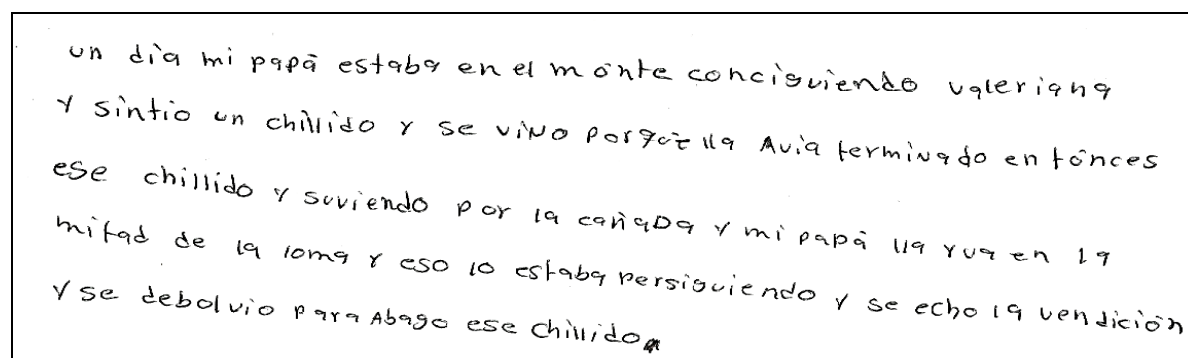 un día mi papá estaba en el monte conciguiendo valeriana
y sintio un chillido y se vino porqué lla Avia terminado entónces
ese chillido y suviendo por la cañaDa y mi papá lla yva en la
mitad de la loma y eso lo estaba persiguiendo y se echo la vendición
y se debolvio para Abago ese chillido.